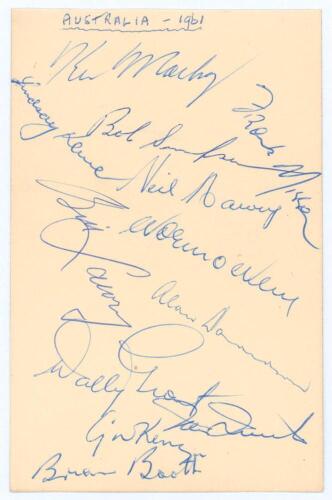 AUSTRALIA - 1961
Ken Mackay
Frank Misson
Bob Simpson
Lindsay Kline
Neil Harvey
Norm O'Neill
Bill Lawry
Alan Davidson
Wally Grout
Ian Quick
Gra McKenzie
Brian Booth